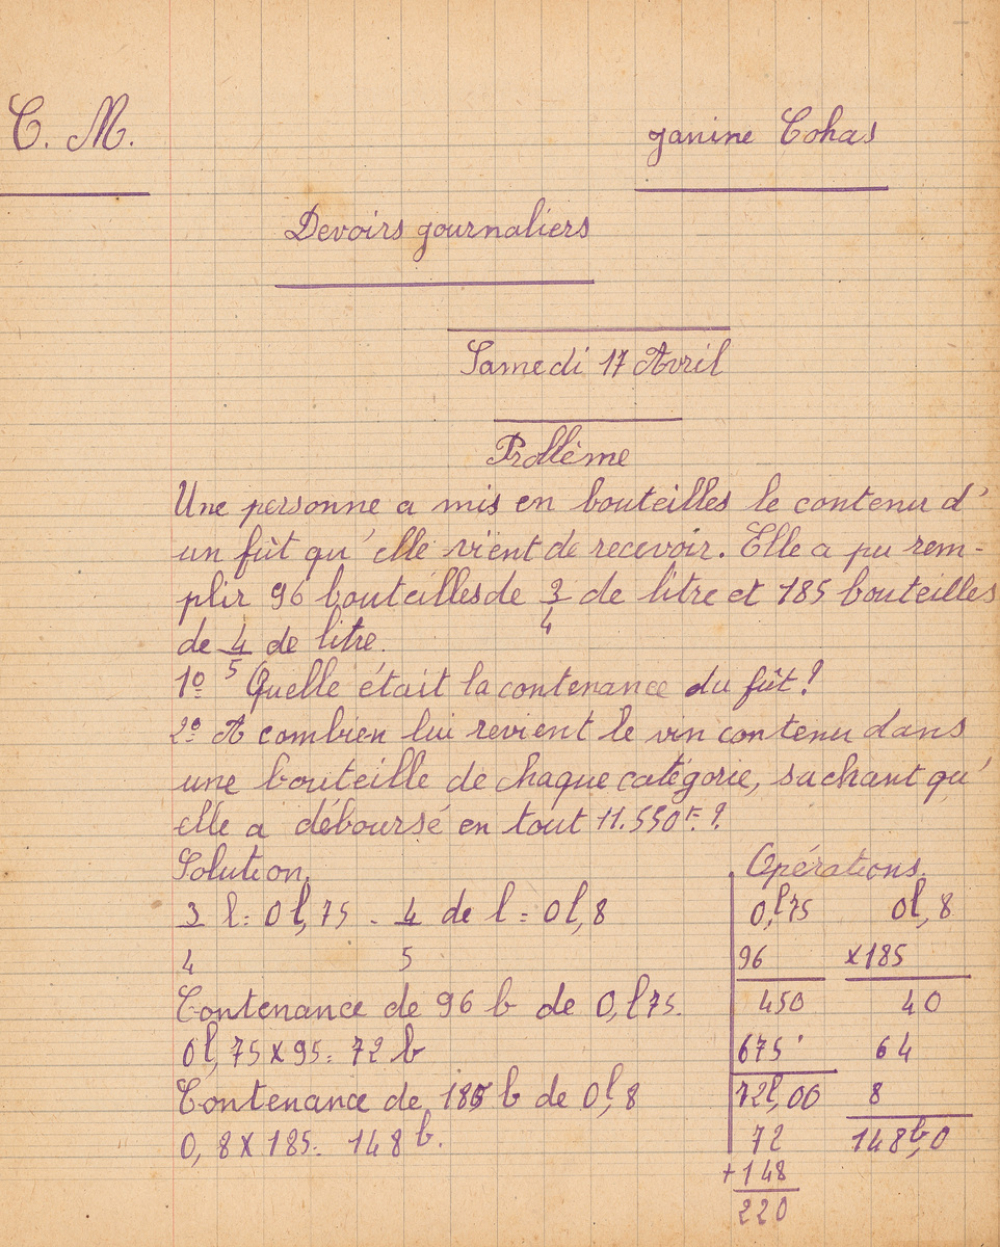 C. M.
Janine Cohas
Devoirs journaliers
Samedi 17 Avril
Problème
Une personne a mis en bouteilles le contenu d'
un fût qu'elle vient de recevoir. Elle a pu rem-
plir 96 bouteilles de 3/4 de litre et 185 bouteilles
de 4/5 de litre.
1º Quelle était la contenance du fût?
2º A combien lui revient le vin contenu dans
une bouteille de chaque catégorie, sachant qu'
elle a déboursé en tout 11.550F.?
Solution.
Opérations.
3/4 l = 0l,75 - 4/5 de l = 0l,8
0,l75 0l,8
96 x185
Contenance de 96 b de 0,l75.
450 40
0l,75 x 95 = 72 b
675 64
Contenance de 185 b de 0l,8
72l,00 8
0,8 x 185 = 148 b.
72 148b,0
+148
220